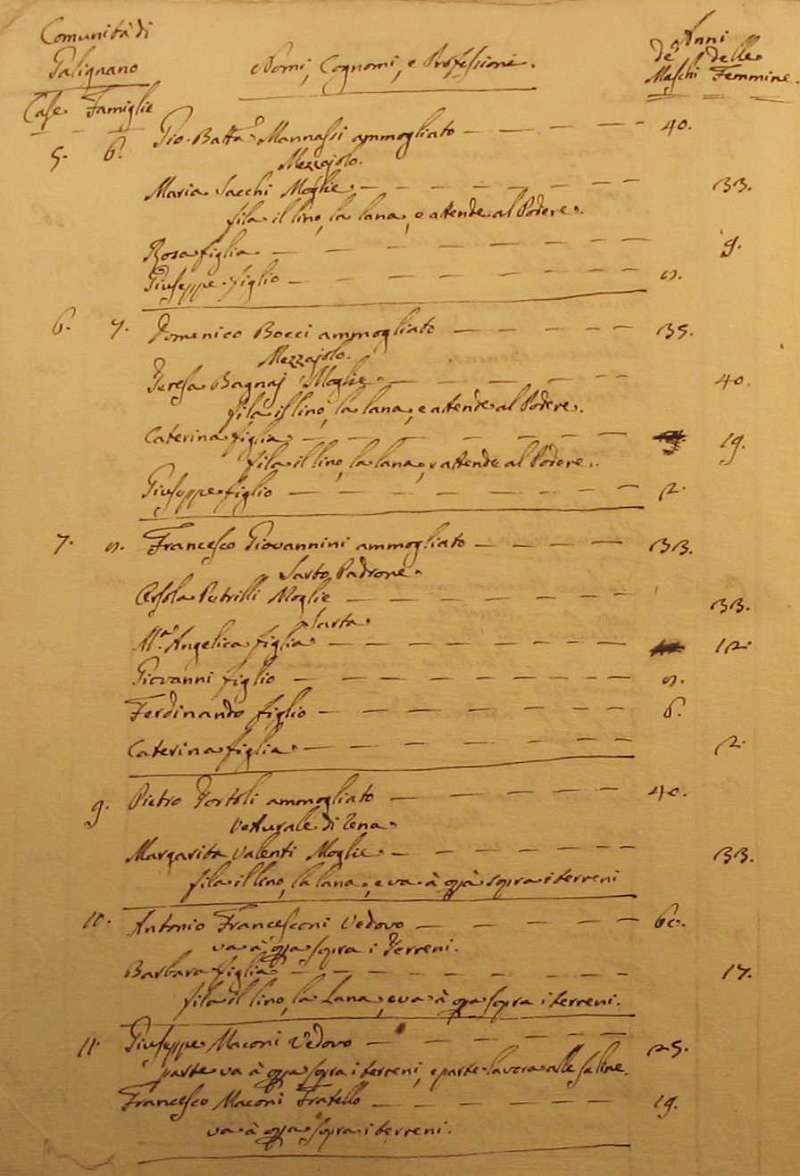 Comunità di
Palignano
Case Famiglie
Nomi, Cognomi, e Professioni.
Anni
de' delle
Maschi Femmine.
5. 6. Gio. Batt.a Mannassi ammogliato 40.
Mezzajolo.
Maria Sacchi Moglie. 33.
fila il lino, la lana, e attende al Podere.
Rosa figlia. 9.
Giuseppe figlio
6. 7. Domenico Bocci ammogliato 35.
Mezzajolo.
Teresa Bagnaj Moglie. 40.
fila il lino, la lana, e attende al Podere.
Caterina figlia 19.
fila il lino, la lana, e attende al Podere.
Giuseppe figlio 2.
7. Francesco Giovannini ammogliato 33.
Sarto Padrone.
Orsola Petrilli Moglie 33.
Sarta.
M.a Angelica figlia 12.
Giovanni figlio
Ferdinando figlio 6.
Caterina figlia. 2.
9. Pietro Tortoli ammogliato 40.
Vetturale di
Margarita Valenti Moglie. 33.
fila il lino, la lana, e va à opa sopra i terreni
10. Antonio Francesconi Vedovo 60.
va à opa sopra i Terreni.
Barbara figlia 17.
fila il lino, la Lana, e va à opa sopra i terreni.
11. Giuseppe Maconi Vedovo 25.
parte va à opa sopra i terreni, e parte lavora alle Saline.
Francesco Maconi Fratello 19.
va à opa sopra i terreni.